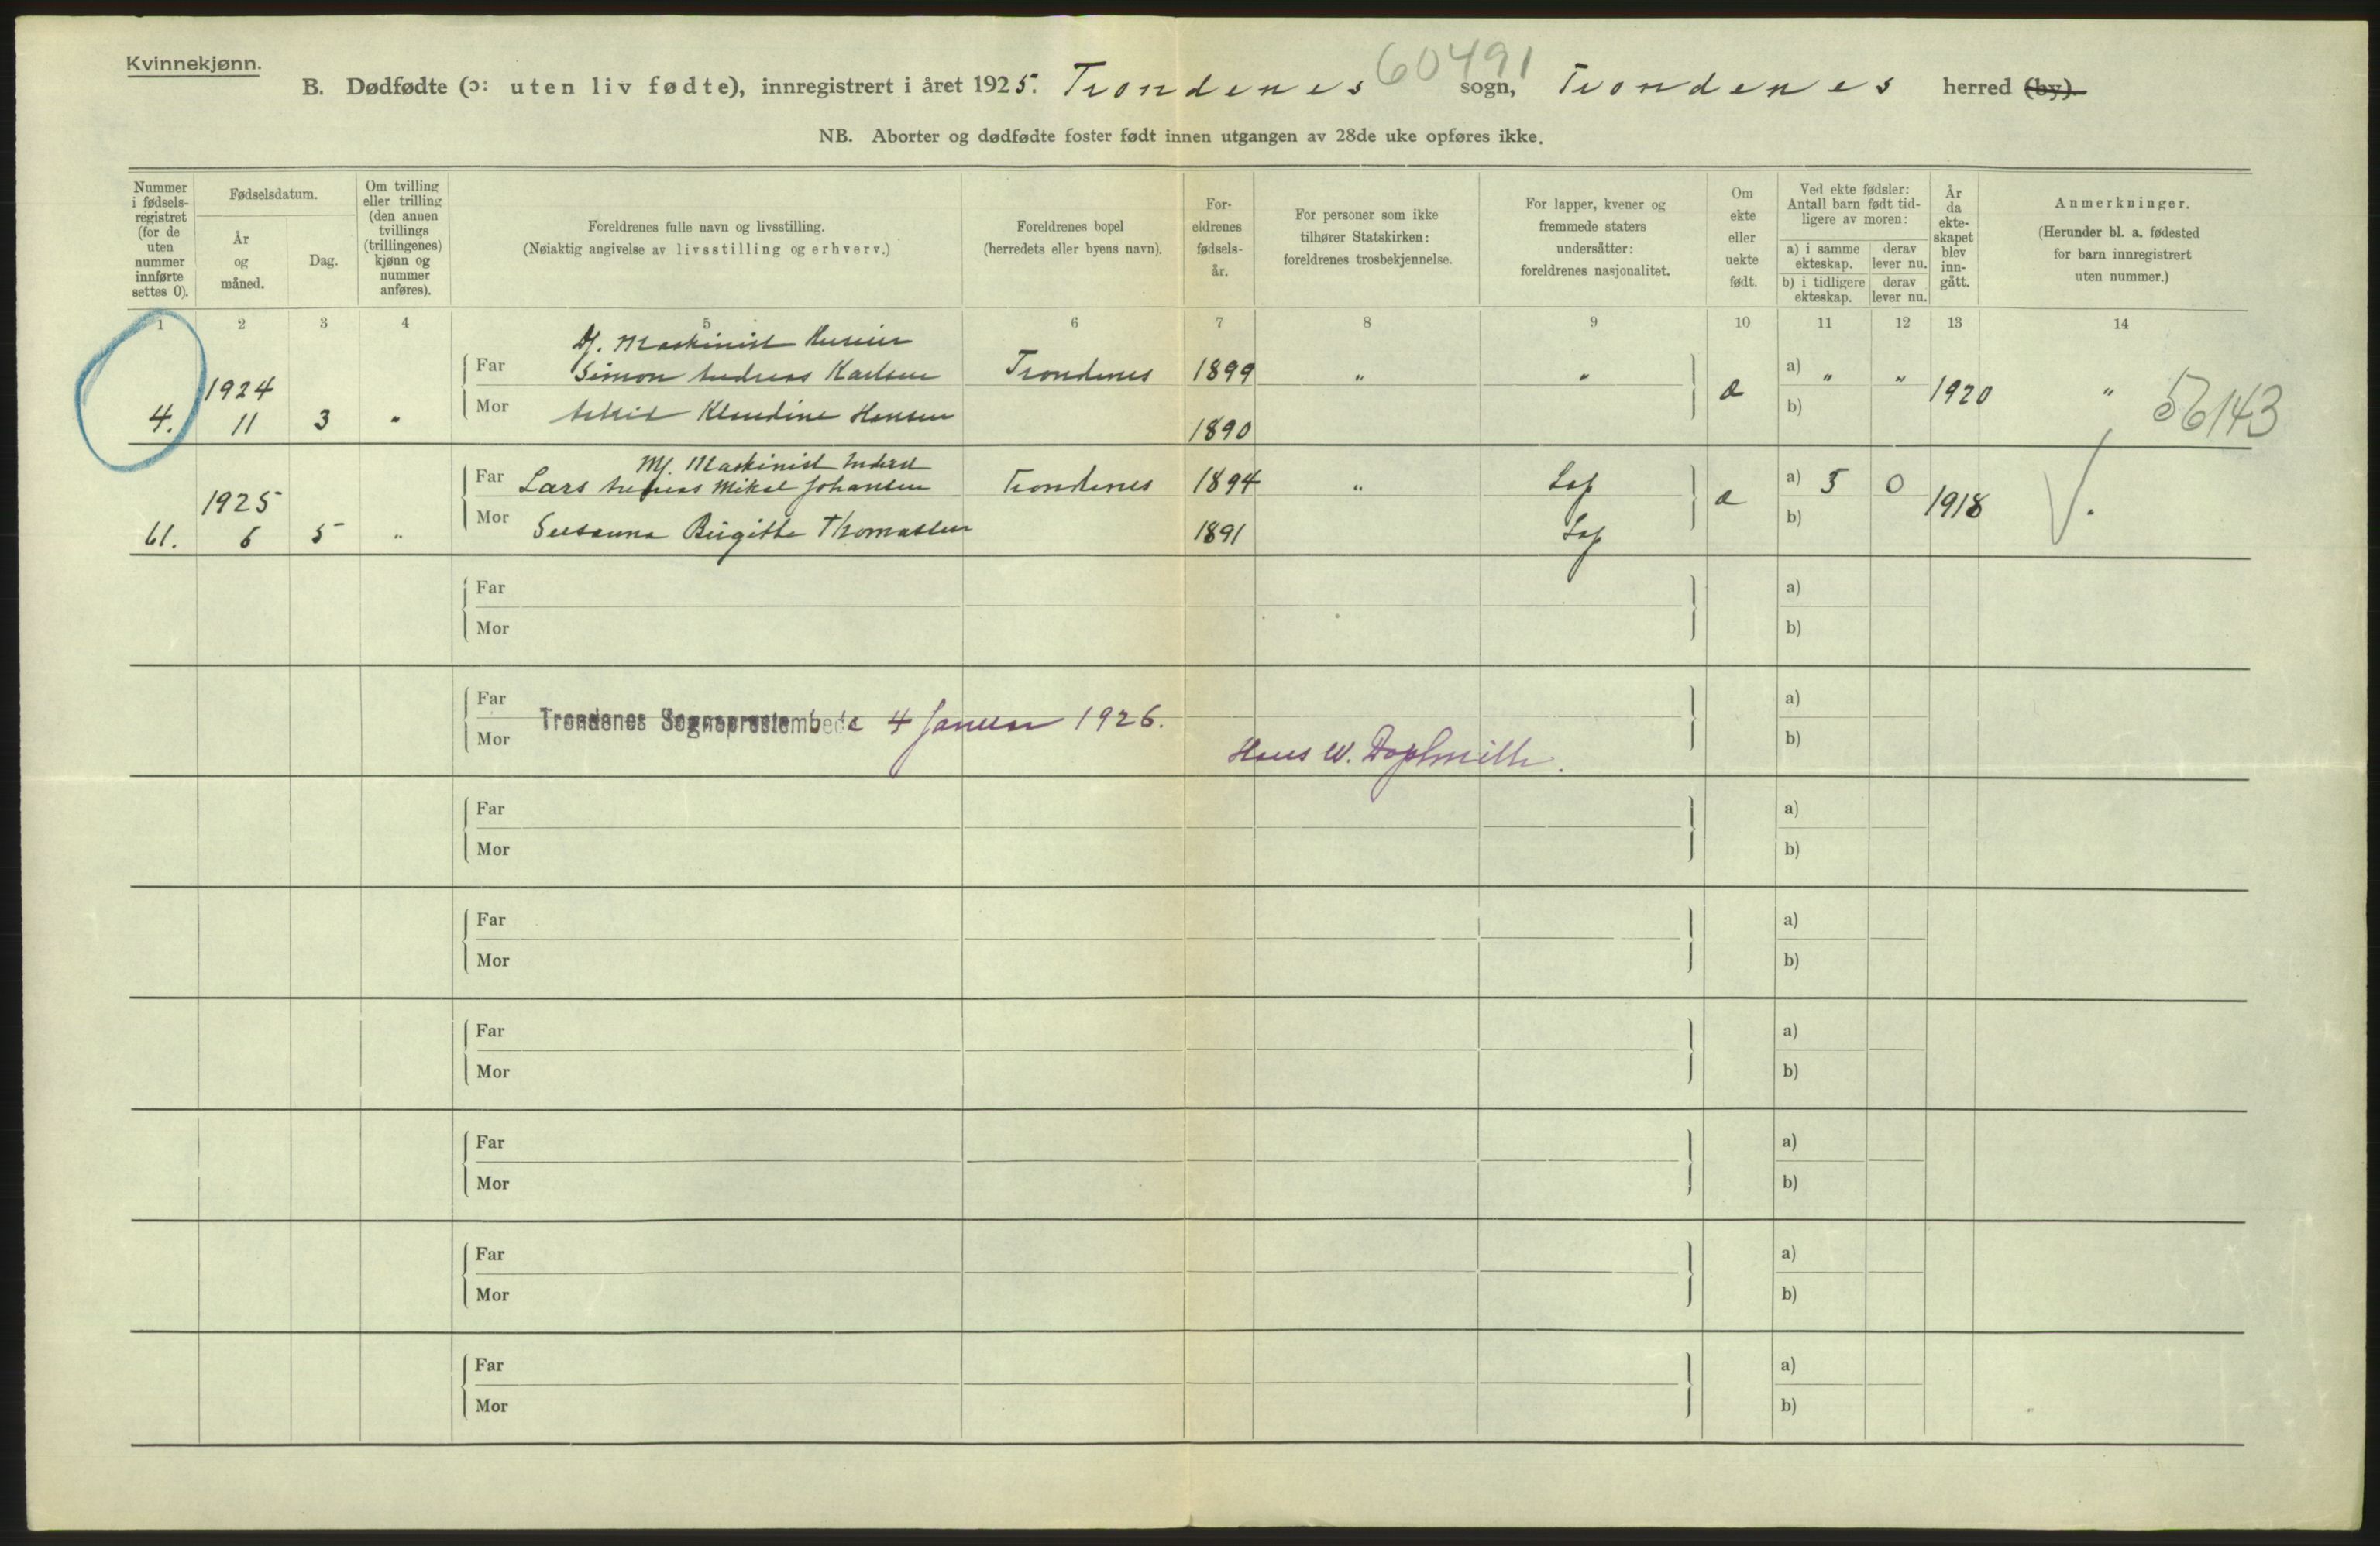 Kvinnekjønn.
60491
B. Dødfødte (ɔ: uten liv fødte), innregistrert i året 1925. Trondenes sogn, Trondenes herred (by).
NB. Aborter og dødfødte foster født innen utgangen av 28de uke opføres ikke.
Nummer i fødsels-registret (for de uten nummer innførte settes 0).
Fødselsdatum.
År og måned.
Dag.
Om tvilling eller trilling (den annen tvillings (trillingenes) kjønn og nummer anføres).
Foreldrenes fulle navn og livsstilling.
(Nøiaktig angivelse av livsstilling og erhverv.)
Foreldrenes bopel
(herredets eller byens navn).
For-eldrenes fødsels-år.
For personer som ikke tilhører Statskirken: foreldrenes trosbekjennelse.
For lapper, kvener og fremmede staters undersåtter: foreldrenes nasjonalitet.
Om ekte eller uekte født.
Ved ekte fødsler: Antall barn født tid-ligere av moren:
a) i samme ekteskap.
derav lever nu.
b) i tidligere ekteskap.
derav lever nu.
År da ekte-skapet blev inn-gått.
Anmerkninger.
(Herunder bl. a. fødested for barn innregistrert uten nummer.)
1 2 3 4 5 6 7 8 9 10 11 12 13 14
Maskinist
Far Simon Andreas Karlsen Trondenes 1899 " " a) " "
1924 1920 " 56143
4. 11 3 "
Mor Klaudine Hansen 1890 b)
Maskinist
Far Lars Andreas Mikal Johansen Trondenes 1894 " Lap a) 5 0
1925 1918
61. 6 5 "
Mor Susanna Birgitte Thomassen 1891 Lap b)
Far a)
Mor b)
Far a)
Trondenes Sogneprestembede 4 Januar 1926.
Mor b)
Hans W.
Far a)
Mor b)
Far a)
Mor b)
Far a)
Mor b)
Far a)
Mor b)
Far a)
Mor b)
Far a)
Mor b)